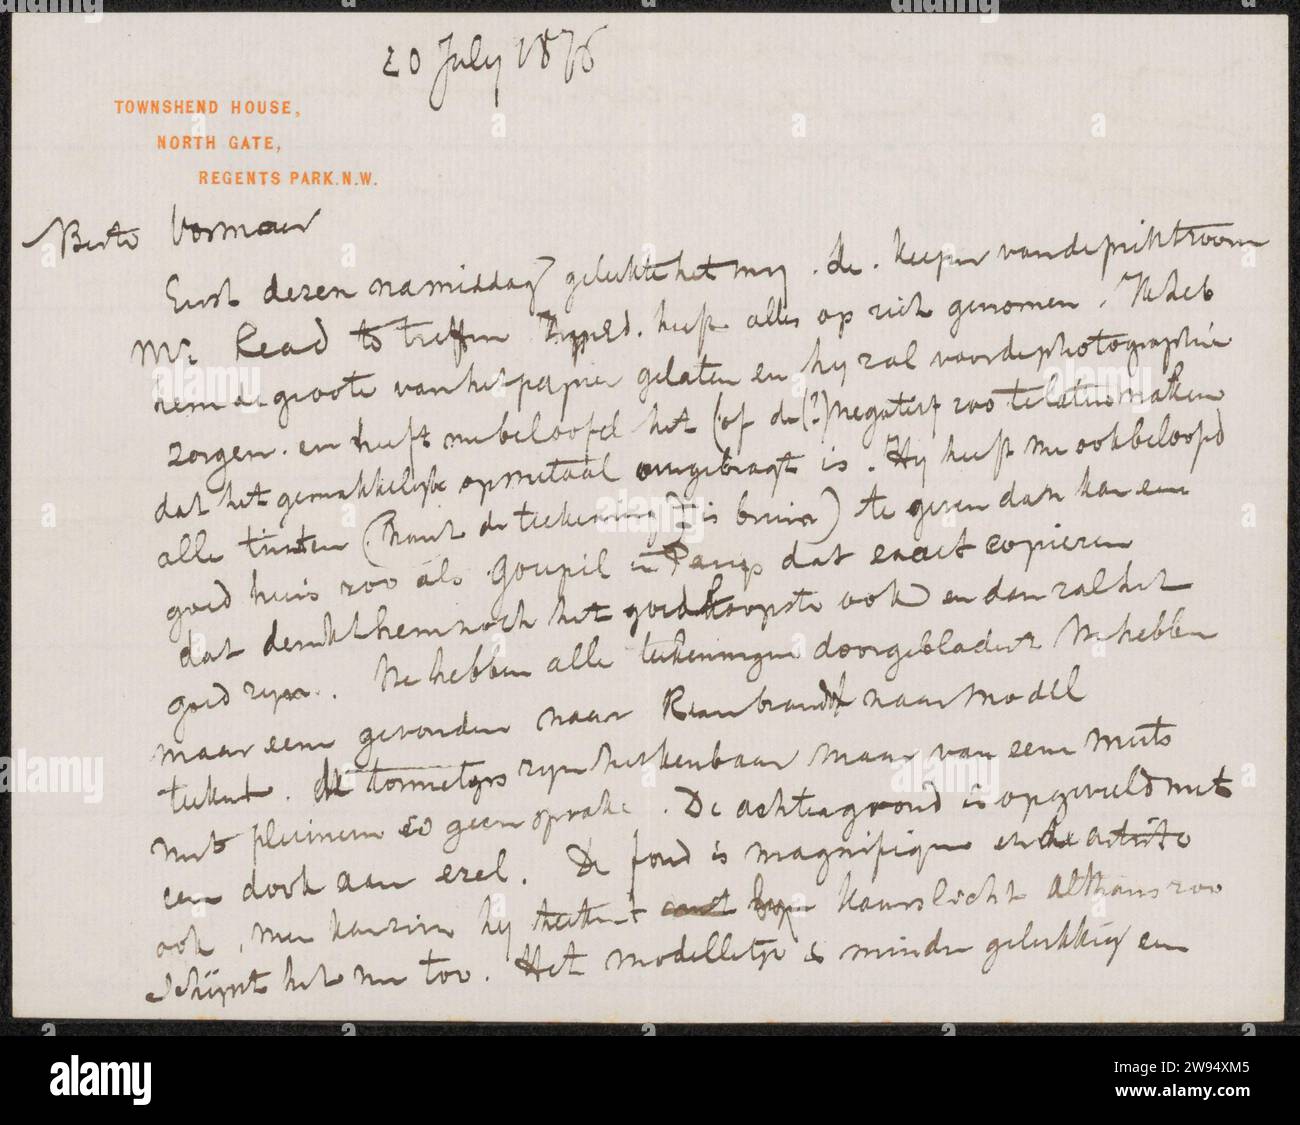 20 July 1876
TOWNSHEND HOUSE,
NORTH GATE,
REGENTS PARK.N.W.
Beste Vosmaer
Eerst dezen namiddag gelukte het mij de keeper van de printroom
Mr. Read te treffen. heeft alles op zich genomen. Ik heb
hem de groote van het papier gelaten en hij zal voor de photographie
zorgen. en heeft me beloofd het (of de (?) negatief zoo te laten maken
dat het gemakkelijk op metaal omgebragt is. Hij heeft me ook beloofd
alle tinten (want de teekening is bruin) te geven dan kan een
goed huis zoo als Goupil in Parijs dat exact copieren
dat denkt hem noch het goedkoopste ook en dan zal het
goed zijn. We hebben alle teekeningen doorgebladert We hebben
maar een gevonden naar Rembrandt naar model
teekent. de tormetjes zijn herkenbaar maar van een muts
met pluimen is geen sprake. De achtergrond is opgevuld met
een doek aan ezel. De fond is magnifique en de artiste
ook, men kan zien hij teekent bij kaarslicht althans zoo
schijnt het me toe. Het modelletje is minder gelukkig en
alamy
Image ID: 2W94XM5
www.alamy.com